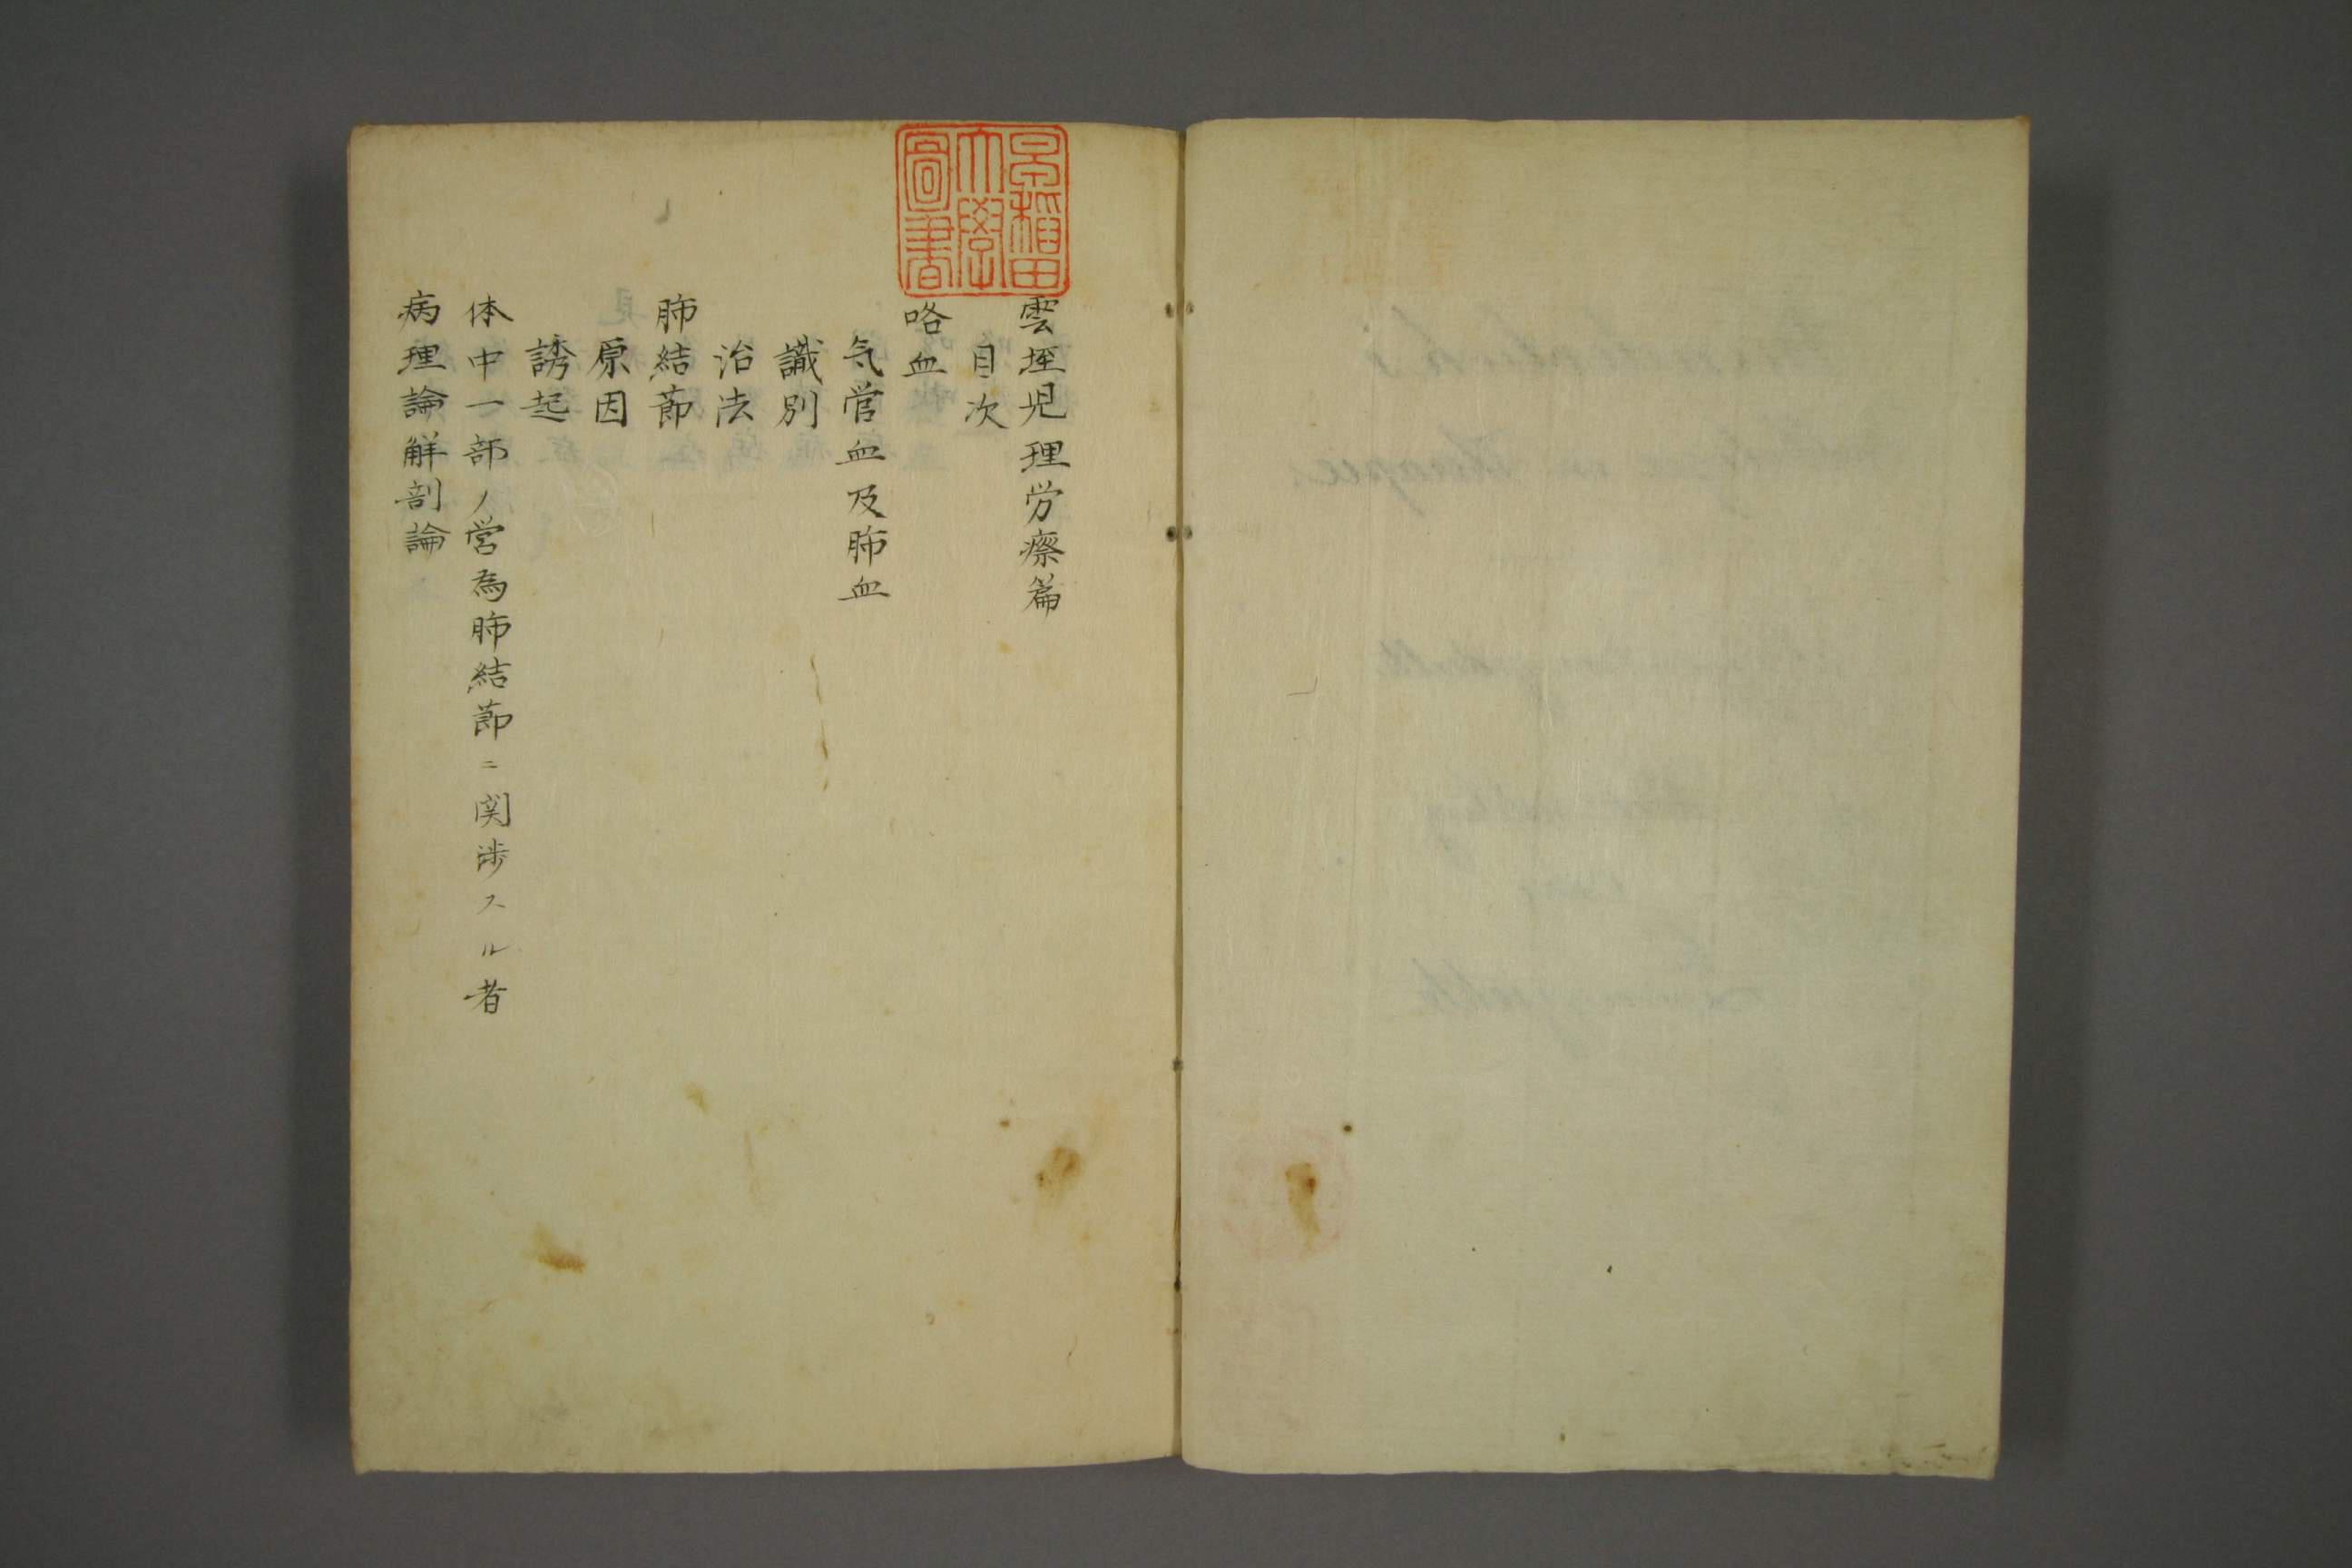 早稲田
大學
圖書
雲垤児理労瘵篇
目次
咯血
気管血及肺血
識別
治法
肺結節
原因
誘起
体中一部ノ営為肺結節ニ関渉スル者
病理論解剖論